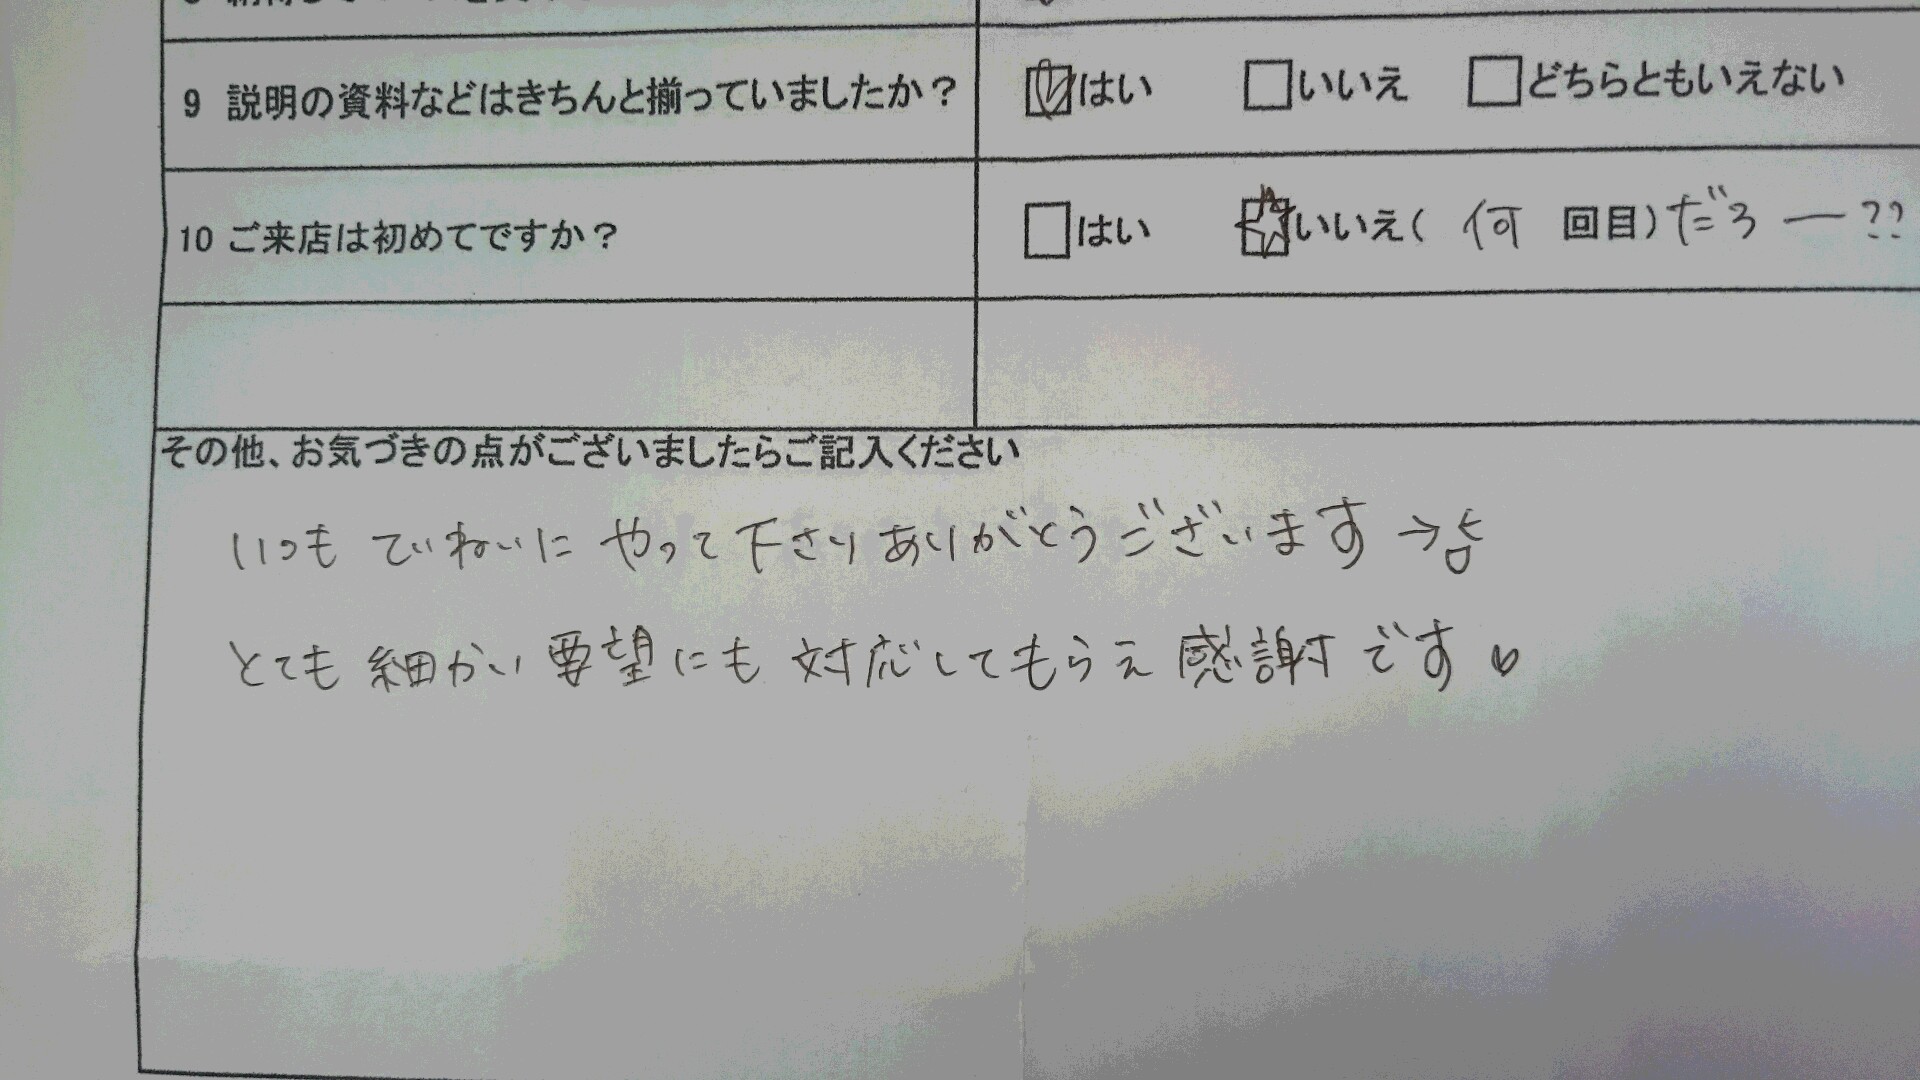 9 説明の資料などはきちんと揃っていましたか？ はい いいえ どちらともいえない
10 ご来店は初めてですか？ はい いいえ( 何 回目)だろー??
その他、お気づきの点がございましたらご記入ください
いつも ていねいに やって下さり ありがとうございます
とても 細かい 要望にも 対応してもらえ 感謝です♡